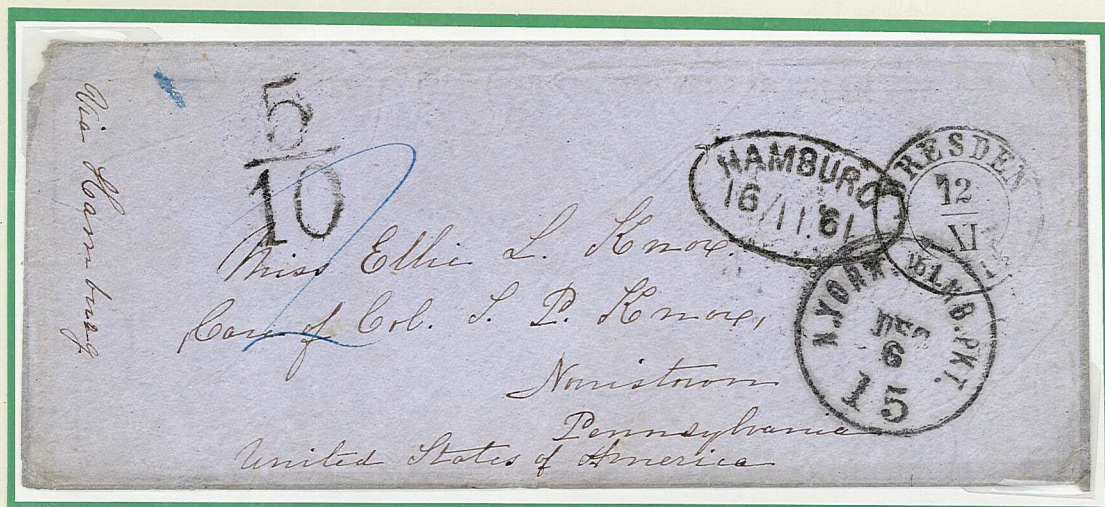 Via Hamburg
5
10
HAMBURG
16/11.61
DRESDEN
12
XI
N.YORK HMB.PKT.
DEC
6
15
Miss Ellie L. Knox.
Care of Col. S. P. Knox,
Norristown
Pennsylvania
United States of America